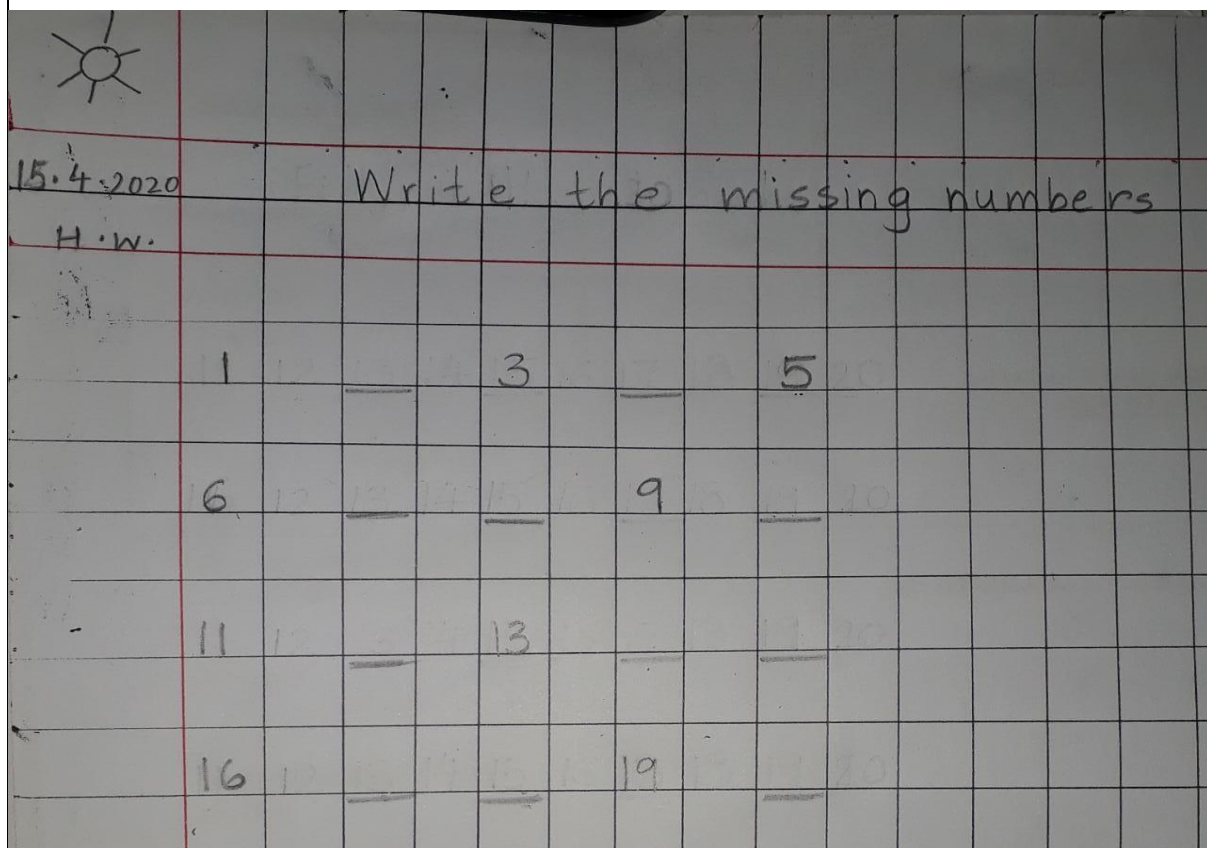 15.4.2020 Write the missing numbers
H.W.
1 __ 3 __ 5
6 __ __ 9 __
11 __ 13 __ __
16 __ __ 19 __